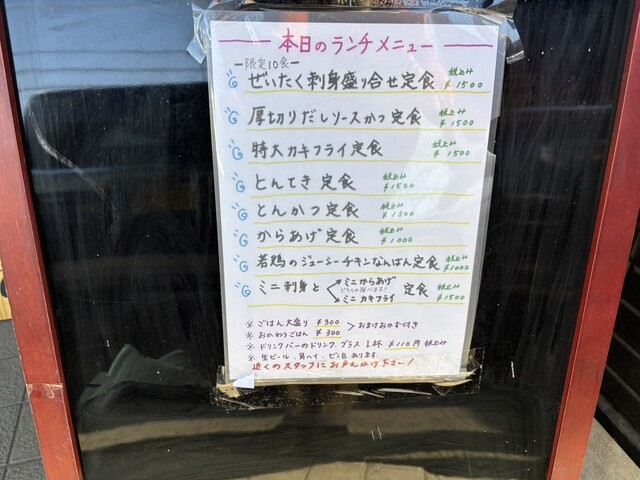 本日のランチメニュー
ー限定10食ー
ぜいたく刺身盛り合せ定食 税込み ¥1500
厚切りだしソースかつ定食 税込み ¥1500
特大カキフライ定食 税込み ¥1500
とんてき定食 税込み ¥1500
とんかつ定食 税込み ¥1300
からあげ定食 税込み ¥1000
若鶏のジューシーチキンなんばん定食 税込み ¥1000
ミニ刺身と ミニからあげ 定食 税込み ¥1500
どちらか選べます!
ミニカキフライ
※ ごはん大盛り ¥300
※ おかわりごはん ¥300 > おまけおかず付き
※ ドリンクバーのドリンク、グラス1杯 ¥110円 税込み
※ 生ビール、角ハイ、ビンBあります。
近くのスタッフにお声かけ下さい!